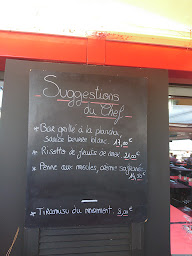 Suggestions
du Chef
* Bar grillé à la plancha,
sauce beurre blanc. 19,00€
* Risotto de fruits de mer. 21,00€
* Penne aux moules, crème safranée.
* Tiramisu du moment. 8,00€